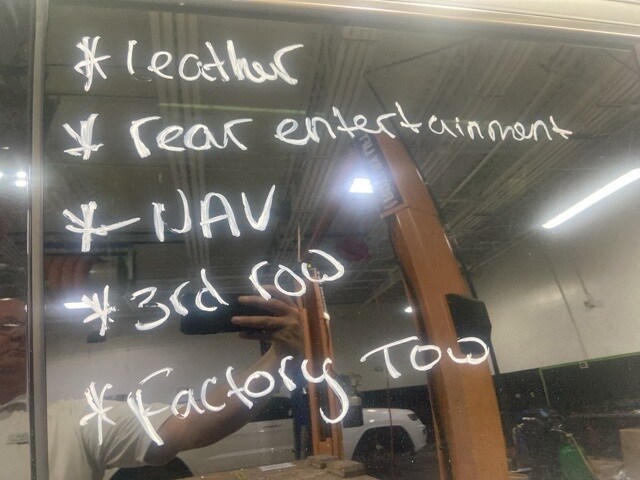 * leather
* rear entertainment
* NAV
* 3rd row
* Factory Tow